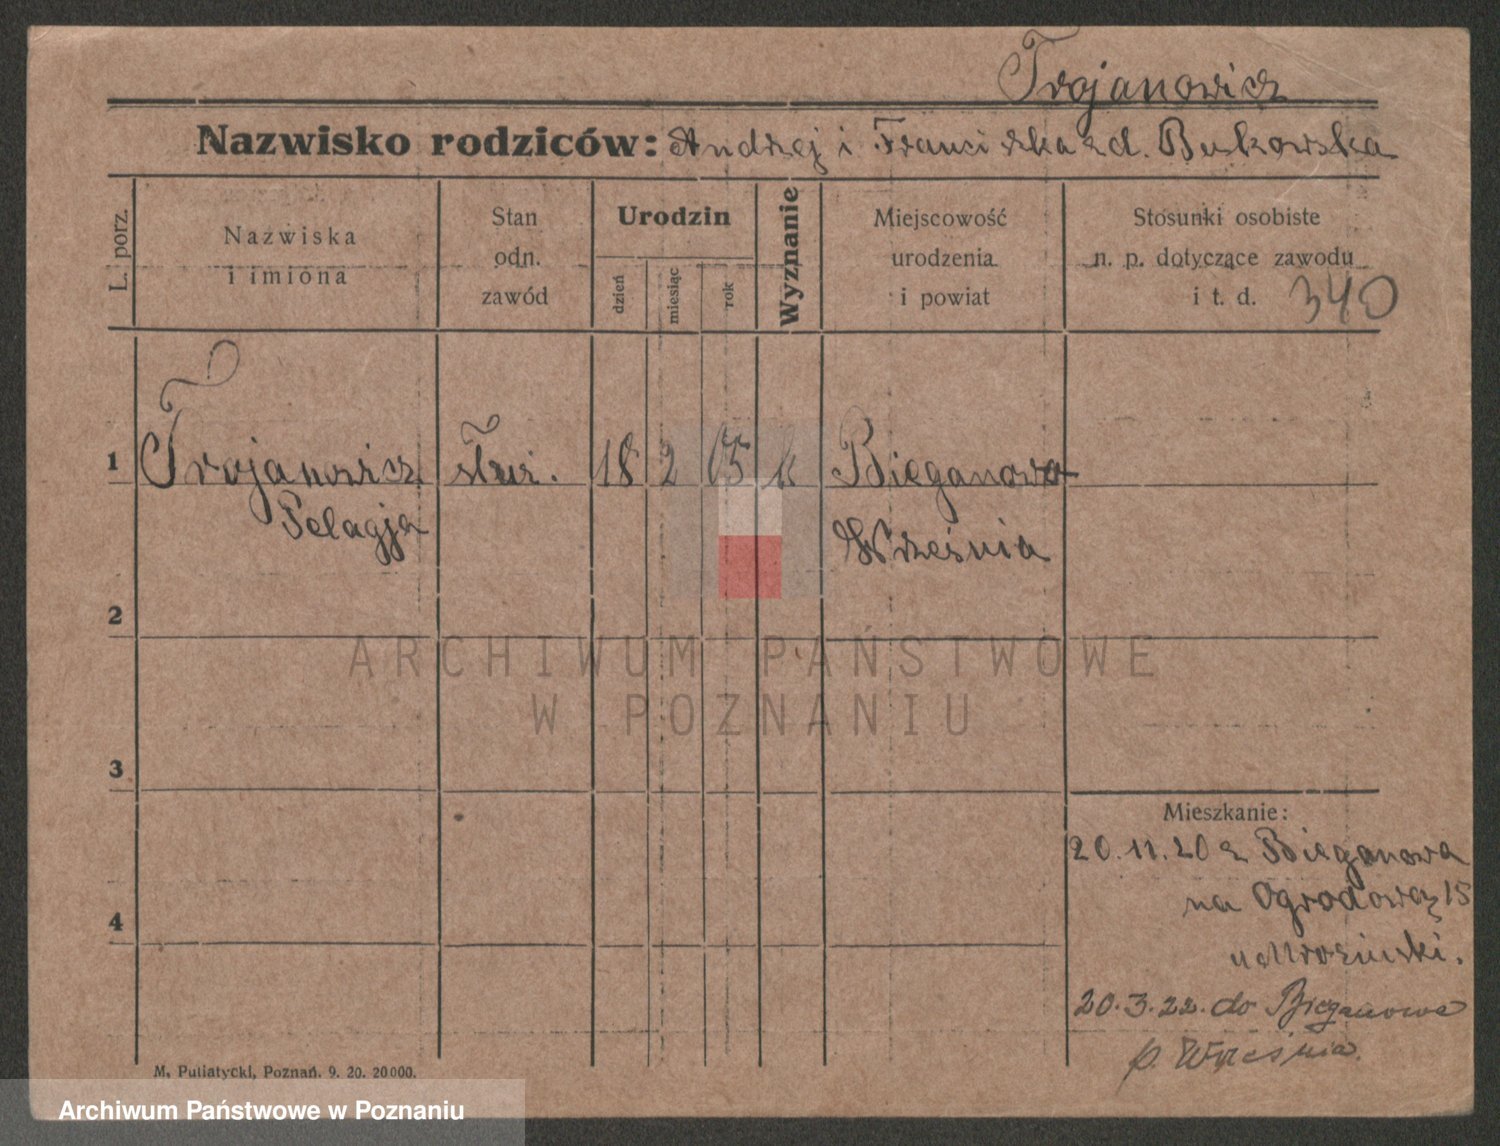 Trojanowicz
Nazwisko rodziców: Andrzej i Franciszka zd. Bukowska
L. porz.
Nazwiska
i imiona
Stan
odn.
zawód
Urodzin
dzień
miesiąc
rok
Wyznanie
Miejscowość
urodzenia
i powiat
Stosunki osobiste
n. p. dotyczące zawodu
i t. d. 340
1 Trojanowicz służ. 18 2 05 k Bieganowo
Pelagja Września
2
ARCHIWUM PAŃSTWOWE
W POZNANIU
3
Mieszkanie:
20.11.20 z Bieganowa
na Ogrodową 15
4
20.3.22. do Bieganowa
p. Września.
M. Putiatycki, Poznań. 9. 20. 20000.
Archiwum Państwowe w Poznaniu